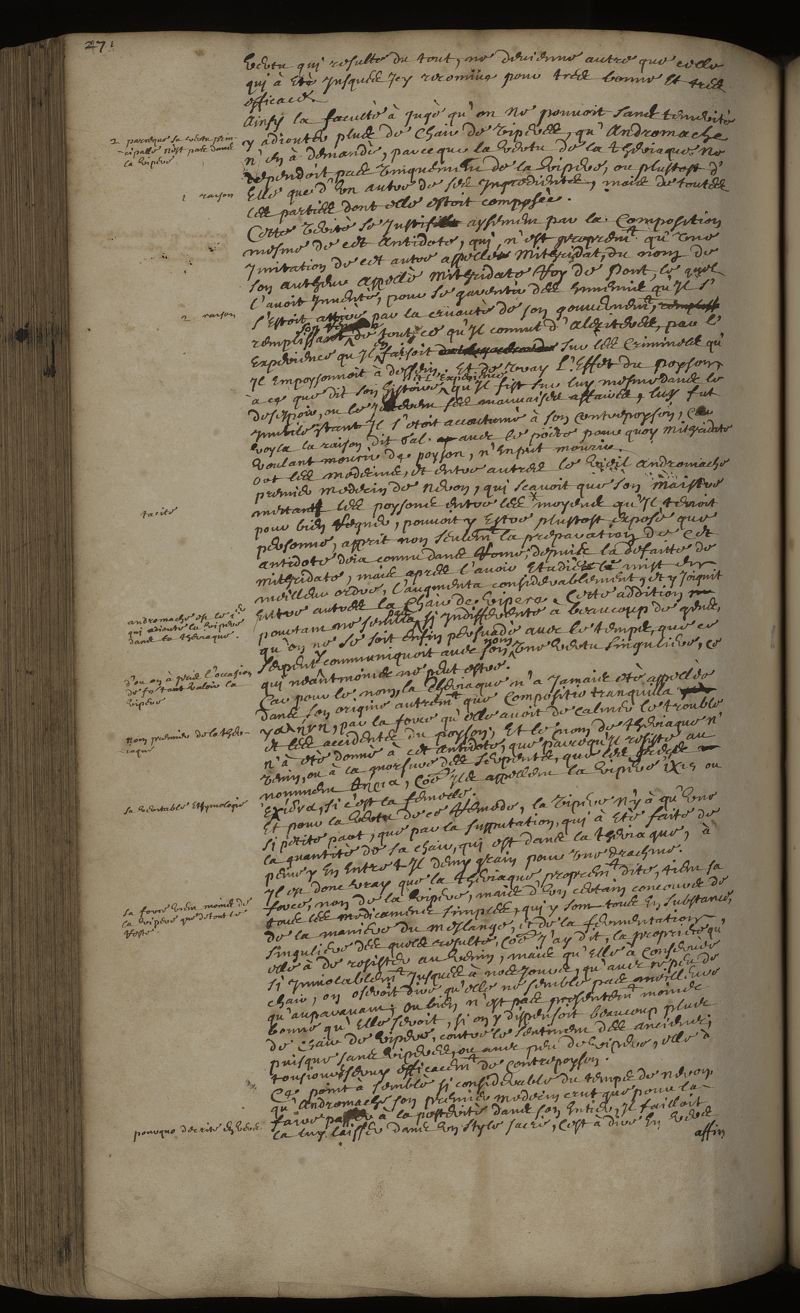 271
vertu qui resulte du tout, ne devienne autre que celle
qui à été Jusques Icy reconnüe pour tres bonne et tres
efficace.
Ainsy la faculté à Jugé qu'on ne pouvoit sans temerité
y adiouter plus de chair de viperes, qu'Andromache
2 parceque sa vertu prin-
-cipalle n'est pas dans
la vipere
n'en à demandé, parceque la vertu de la theriaque ne
dependoit pas uniquement de la vipere, ou plustost d'
1 raison
Elle que d'un autre de ses Ingredients, mais de toutes
les parties dont elle estoit composée.
Cette verité se Justifie aysement par la Composition
mesme de cet antidote, qui n'est proprem^t qu'une
Imitation de cet autre appellé Mithridat, du nom de
son autheur appellé Mithridate Roy de Pont, le quel
l'avoit Inventé, pour se garentir des Ennemis qu'Il s'
2 raison
s'estoit par la cruauté de son gouvernem^t,
remplissant son de tout ce qu'Il connut d'alexiteres, par l'
Experience qu'Il faisoit sur les Criminels qu'
Il Empoysonnoit à dessein. Et de vray L'Effet du poyson,
à ce que dit son histoire, qu'Il fist sur luy mesme dans le
desespoir, ou le ses mauvaises affaires, luy fut
Inutile s'estant Il s'etoit accoutumé à son contrepoyson, Et
voyla la raison dit Gal. avec le poëte pour quoy Mithridate
voulant mourir de poyson, n'en put mourir.
Or les modernes, et entre autres le vieil andromache
premier medecin de Neron, qui sçavoit que son Maistre
tacite
mettant les poysons entre les moyens qu'Il tenoit
pour bien regner, pouvoit y Estre plustost exposé que
personne, apprit non seulem^t la preparation de Cet
antidote deia connu dans Rome, depuis la defaitte de
Mithridate, mais apres l'avoir Etudié le mist en
meilleur ordre, l'augmenta considerablement, et y Joignit
andromache est le 1^er
qui adiouta la vipere
dans la theriaque.
Entre autres la Chair de vipere. Cette addition
pourtant ne sembla pas si Indifferente à beaucoup de gens,
qu'on ne se soit Enfin persuadé avec le temps, que ce
d'ou on à pris l'occasion
de fe tant valoir la
vipere
serpent y communiquoit avec son nom une vertu singuliere, ce
qui neantmoins ne peut estre.
Car pour le nom, la theriaque n'a Jamais été appellée
nom premier de la the-
riaque
dans son origine autrem^t que Compositio tranquilla
γαληνη, par la force qu'elle avoit de calmer le trouble
et les accidents du poyson, Et le nom de theriaque n'
n'à été donné à cet antidote, que parce qu'Il resiste au
venin, ou à la morsure des serpents, que les grecs
sa veritable Etymologie
nomment θηρια, comme Ils appellent la vipere ἔχις ou
ἔχιδνα, si c'est la femelle.
Et pour la vertu de ce Remede, la vipere n'y à qu'une
si petite part, que par la supputation, qui à été faite de
la quantité de sa chair, qui est dans la theriaque, à
peine y En entre t Il demy grain pour une drachme.
Il est donc vray que la theriaque proprem^t dite, tient sa
sa force vient moins de
la vipere que de tout le
reste
force, non de la vipere, mais d'un certain concours de
tous les medicaments simples, qui y sont tous En substance,
de la maniere du meslange, et de la fermentation,
singuliere des quels resulte, comme J'ay dit, la proprieté qu'
elle à de resister au venin, mais qu'elle à Conservée
si Inviolablem^t Jusques à nos Jours, qu'avec si peu de
chair, on oseroit dire qu'elle ne semble pas meilleure
qu'auparavant; Ou bien n'est pas presentem^t moins
bonne qu'Elle seroit, si on y dispensoit beaucoup plus
de chair de vipere, contre le sentiment des anciens;
puisque sans viperes, ou avec peu de viperes, elle à
tousiours servy efficacem^t de contrepoyson.
Ce point à semblé si considerable du temps de Neron
qu'Andromache son premier medecin crut que pour la
faire passer à la posterité dans son Entier, Il failloit
pourquo decrite En vers
la luy laisser dans un style sacré, c'est à dire En vers
affin